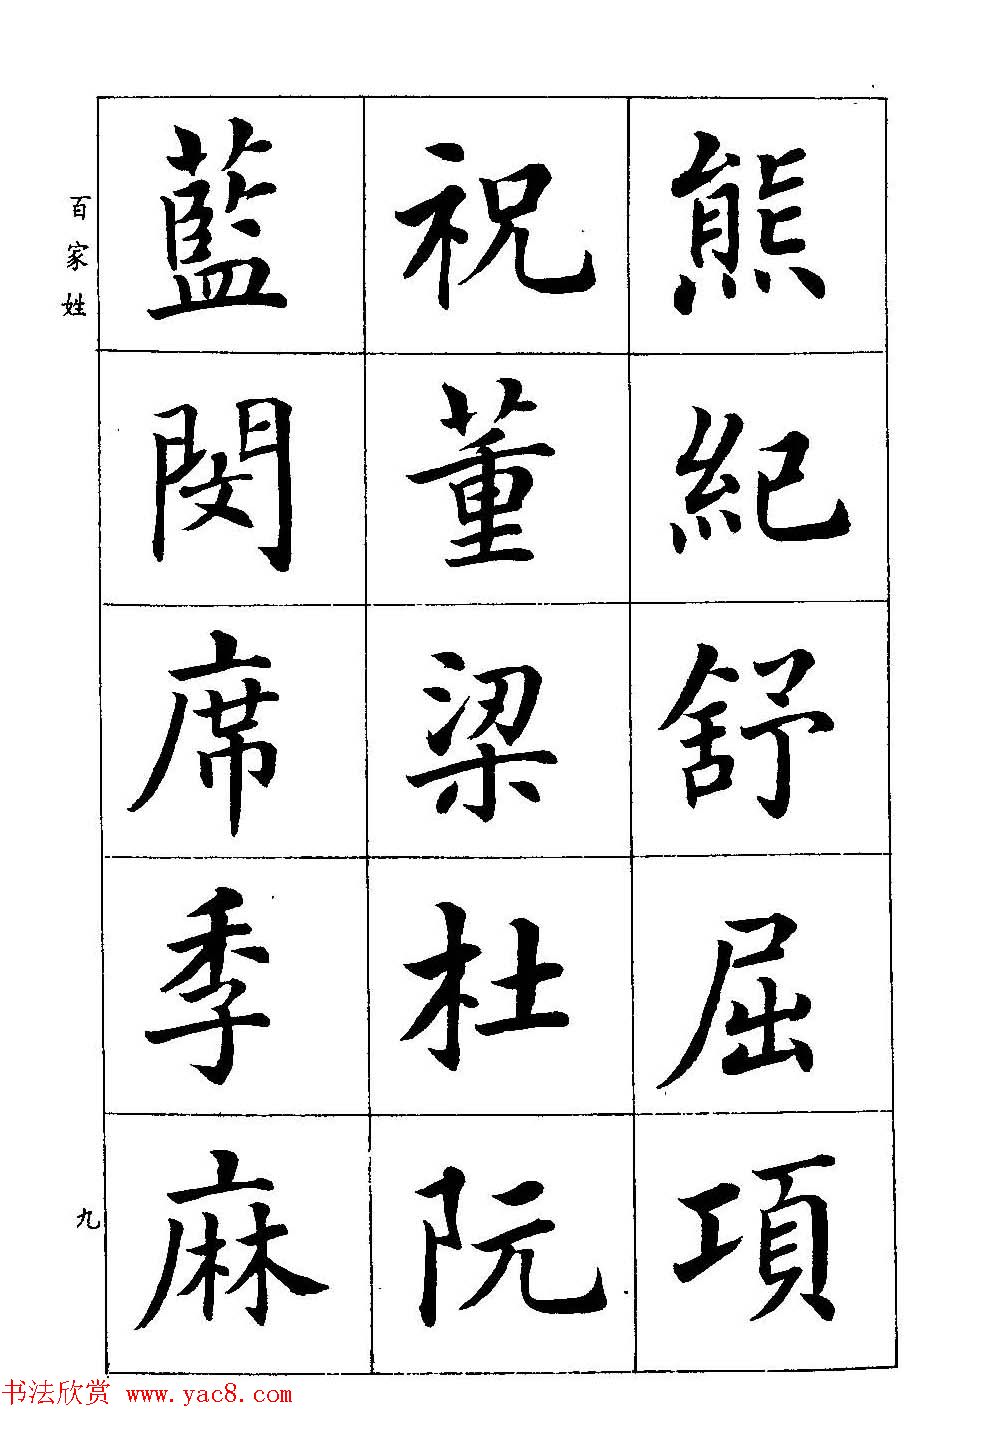 熊紀舒屈項
祝董梁杜阮
藍閔席季麻
百家姓
九
书法欣赏 www.yac8.com